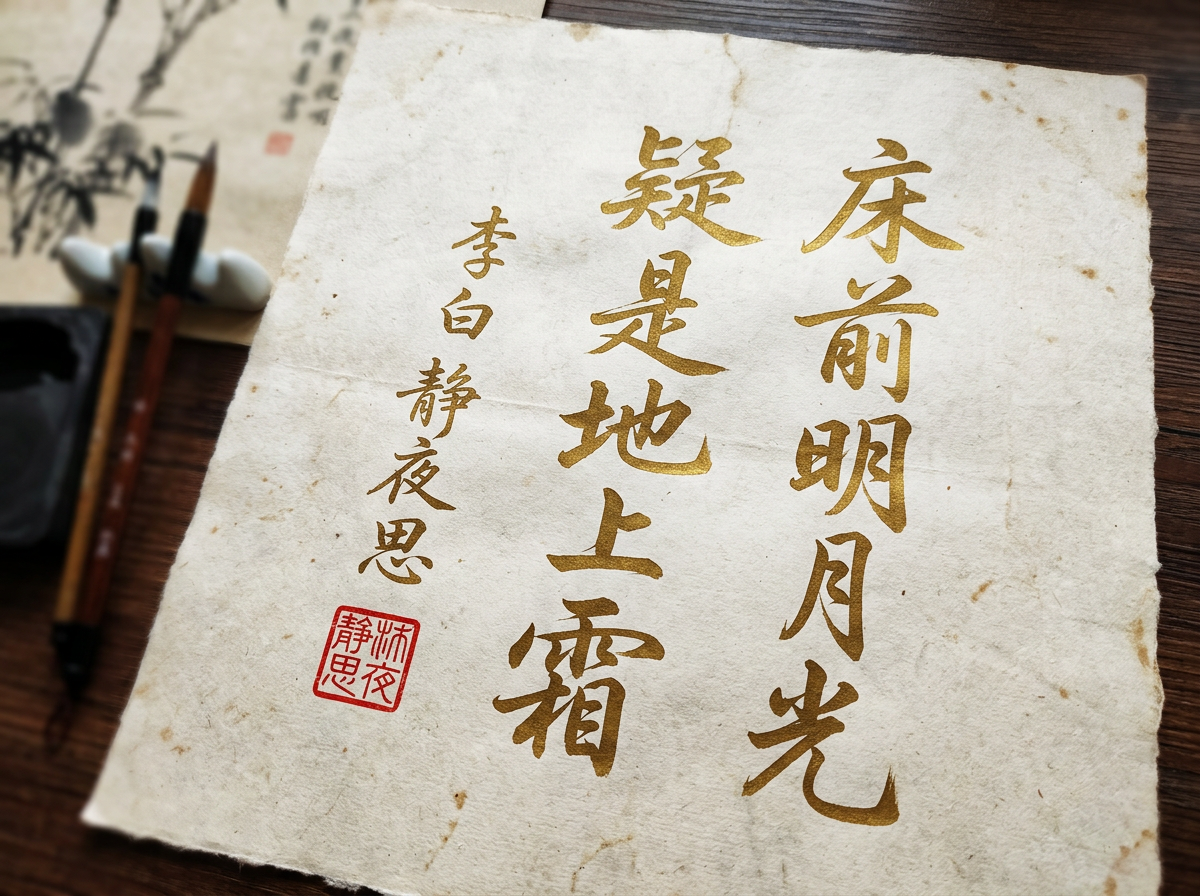 床前明月光
疑是地上霜
李白 静夜思
静夜
思